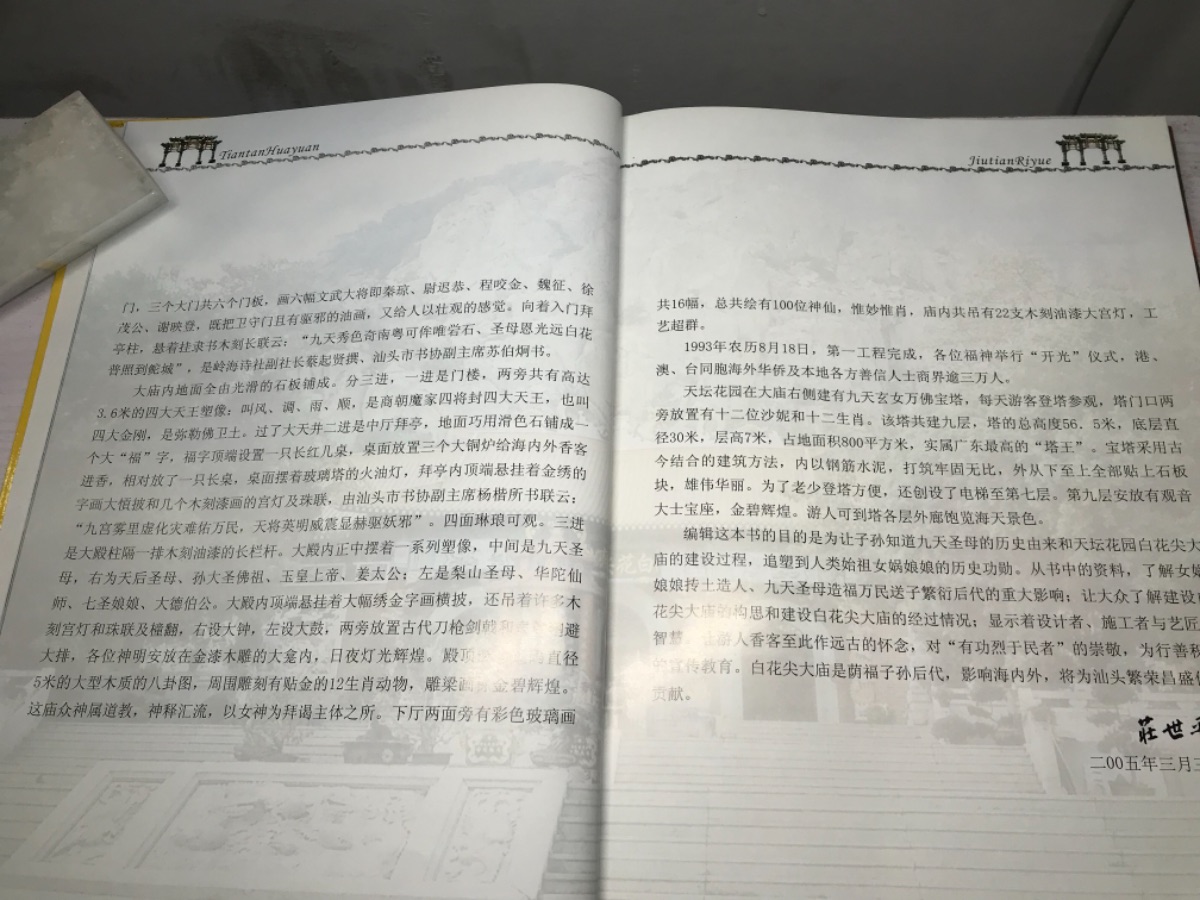 TiantanHuayuan
门，三个大门共六个门板，画六幅文武大将即秦琼、尉迟恭、程咬金、魏征、徐
茂公、谢映登，既把卫守门且有驱邪的油画，又给人以壮观的感觉。向着入门拜
亭柱，悬着挂隶书木刻长联云：“九天秀色奇南粤可侔唯岩石、圣母恩光远白花
普照到鮀城”，是岭海诗社副社长蔡起贤撰、汕头市书协副主席苏伯炯书。
大庙内地面全由光滑的石板铺成。分三进，一进是门楼，两旁共有高达
3.6米的四大天王塑像：叫风、调、雨、顺，是商朝魔家四将封四大天王，也叫
四大金刚，是弥勒佛卫士。过了大天井二进是中厅拜亭，地面巧用滑色石铺成一
个大“福”字，福字顶端设置一只长红几桌，桌面放置三个大铜炉给海内外香客
进香，相对放了一只长桌，桌面摆着玻璃塔的火油灯，拜亭内顶端悬挂着金绣的
字画大恒披和几个木刻漆画的宫灯及珠联，由汕头市书协副主席杨楷所书联云；
“九宫雾里虚化灾难佑万民，天将英明威震显赫驱妖邪”。四面琳琅可观。三进
是大殿柱隔一排木刻油漆的长栏杆。大殿内正中摆着一系列塑像，中间是九天圣
母，右为天后圣母、孙大圣佛祖、玉皇上帝、姜太公；左是梨山圣母、华陀仙
师、七圣娘娘、大德伯公。大殿内顶端悬挂着大幅绣金字画横披，还吊着许多木
刻宫灯和珠联及橦翻，右设大钟，左设大鼓，两旁放置古代刀枪剑戟和避
大排，各位神明安放在金漆木雕的大龛内，日夜灯光辉煌。殿顶直径
5米的大型木质的八卦图，周围雕刻有贴金的12生肖动物，雕梁金碧辉煌。
这庙众神属道教，神释汇流，以女神为拜谒主体之所。下厅两面旁有彩色玻璃画
JiutianRiyue
共16幅，总共绘有100位神仙，惟妙惟肖，庙内共吊有22支木刻油漆大宫灯，工
艺超群。
1993年农历8月18日，第一工程完成，各位福神举行“开光”仪式，港、
澳、台同胞海外华侨及本地各方善信人士商界逾三万人。
天坛花园在大庙右侧建有九天玄女万佛宝塔，每天游客登塔参观，塔门口两
旁放置有十二位沙妮和十二生肖。该塔共建九层，塔的总高度56．5米，底层直
径30米，层高7米，占地面积800平方米，实属广东最高的“塔王”。宝塔采用古
今结合的建筑方法，内以钢筋水泥，打筑牢固无比，外从下至上全部贴上石板
块，雄伟华丽。为了老少登塔方便，还创设了电梯至第七层。第九层安放有观音
大士宝座，金碧辉煌。游人可到塔各层外廊饱览海天景色。
编辑这本书的目的是为让子孙知道九天圣母的历史由来和天坛花园白花尖大
庙的建设过程，追塑到人类始祖女娲娘娘的历史功勋。从书中的资料，了解女娲
娘娘抟土造人、九天圣母造福万民送子繁衍后代的重大影响；让大众了解建设白
花尖大庙的构思和建设白花尖大庙的经过情况；显示着设计者、施工者与艺匠
智慧，让游人香客至此作远古的怀念，对“有功烈于民者”的崇敬，为行善积
宣传教育。白花尖大庙是荫福子孙后代，影响海内外，将为汕头繁荣昌盛
贡献。
莊世
二00五年三月三